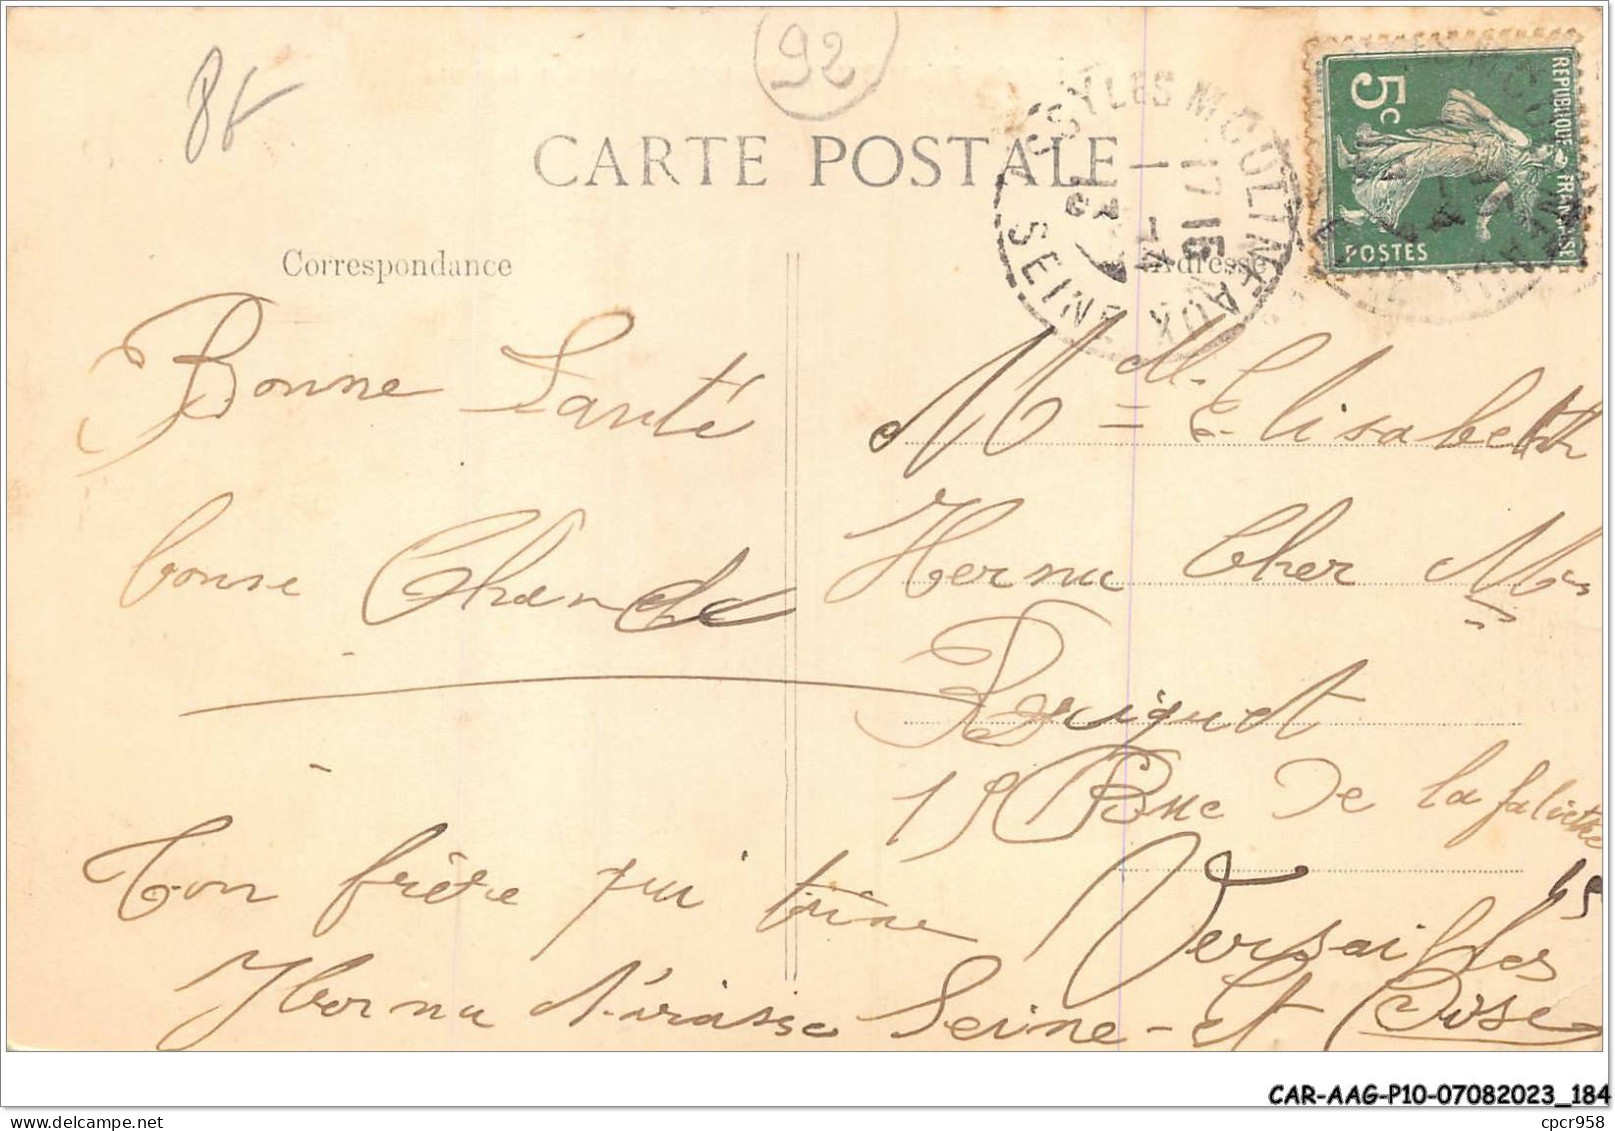 8f
92
CARTE POSTALE
ISSY LES MOULINEAUX
17 15
1 - 4
SEINE
5c
REPUBLIQUE FRANÇAISE
POSTES
Correspondance
Adresse
Bonne Santé
bonne Chance
Ton frère qui t'aime
Hernu
Mdll Elisabeth
Hernu Cher Mr
Briquet
19 Rue De la
Versailles
Seine-et Oise
CAR-AAG-P10-07082023_184
cpcr958